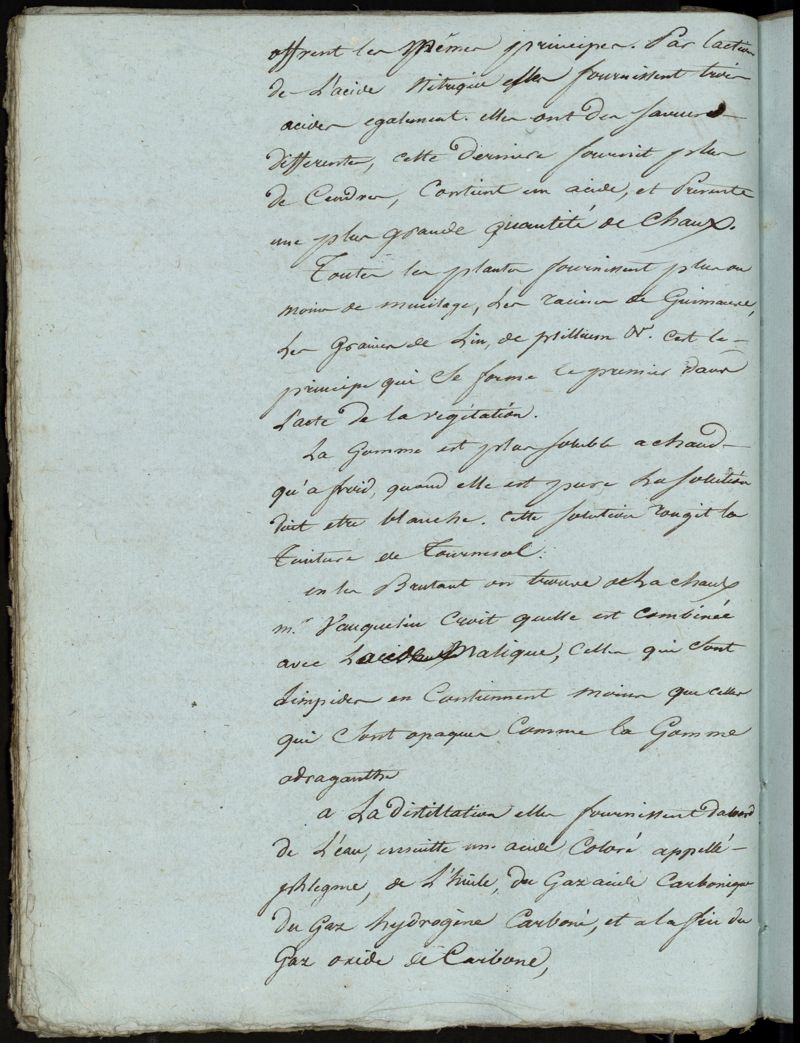 offrent les mêmes principes. Par l'action
de L'acide Nitrique elles fournissent trois
acides egalement. elles ont des saveurs
differentes, cette derniere fournit plus
de Cendres, Contient un acide, et Presente
une plus grande quantité de Chaux.
Toutes les plantes fournissent plus ou
moins de mucilage, Les racines de Guimauve,
Les Graines de Lin, de psillium &c. c'est le
principe qui Se forme le premier dans
L'acte de la végétation.
La Gomme est plus soluble a chaud
qu'a froid, quand elle est pure La solution
doit etre blanche. cette solution rougit la
Teinture de Tournesol.
en les Brulant on trouve de La chaux
mr. Vauquelin Croit quelle est combinée
avec L'acide Malique, Celles qui sont
Limpides en Contiennent moins que celles
qui Sont opaques Comme la Gomme
adraganthe
a La distillation elles fournissent dabord
de L'eau, ensuitte un acide Coloré appellé
phlegme, de L'huile, du Gaz acide Carbonique
du Gaz hydrogène Carboné, et a la fin du
Gaz oxide de Carbone,